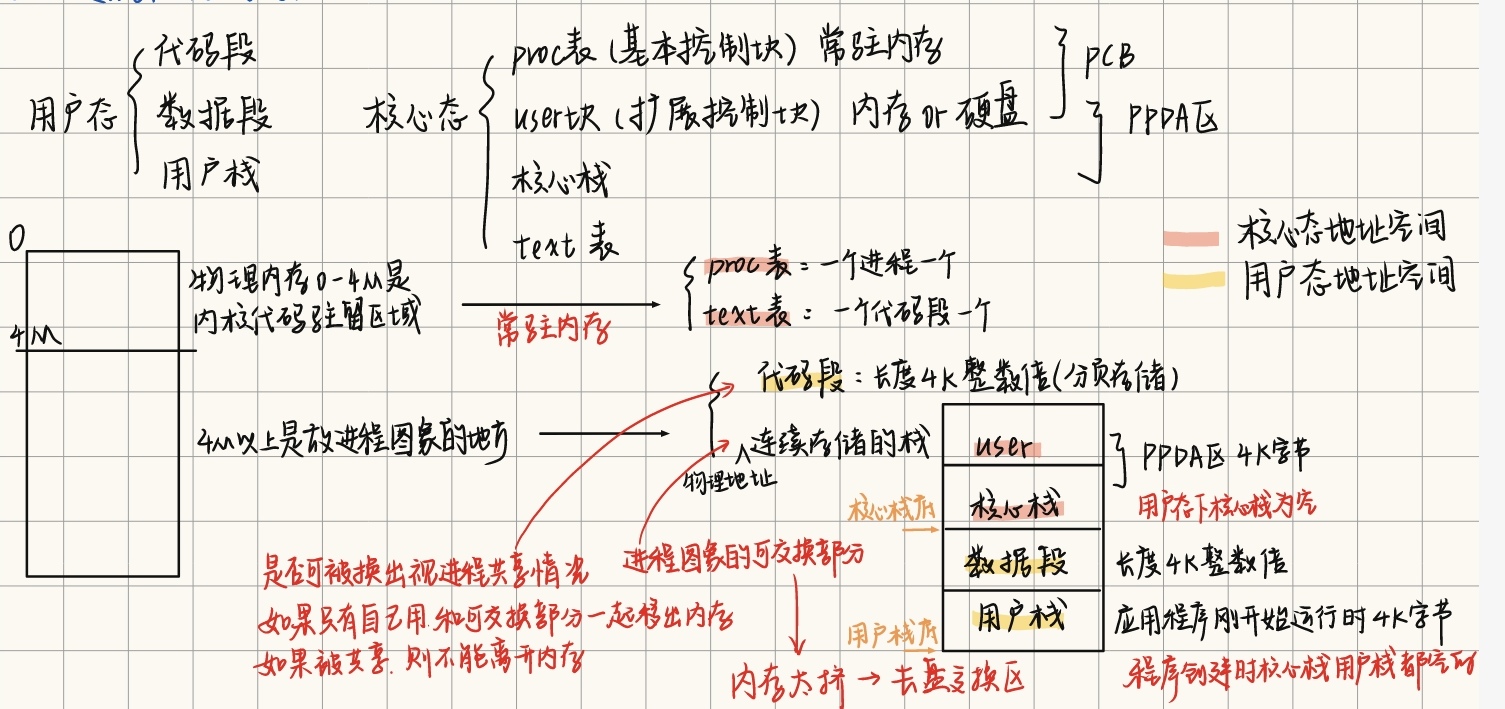 用户态 代码段
数据段
用户栈
核心态 proc表(基本控制块) 常驻内存
user块(扩展控制块) 内存 or 硬盘
核心栈
text 表
PCB
PPDA区
核心态地址空间
用户态地址空间
0
4M
物理内存0-4M是
内核代码驻留区域
常驻内存
proc表:一个进程一个
text表:一个代码段一个
4M以上是放进程图象的地方
代码段:长度4K整数倍(分页存储)
∧连续存储的栈
物理地址
user
核心栈
数据段
用户栈
PPDA区 4K字节
用户态下核心栈为空
长度4K整数倍
应用程序刚开始运行时4K字节
程序创建时核心栈用户栈都空的
核心栈底
用户栈底
是否可被换出视进程共享情况
如果只有自己用,和可交换部分一起移出内存
如果被共享,则不能离开内存
进程图象的可交换部分
内存太挤→去盘交换区